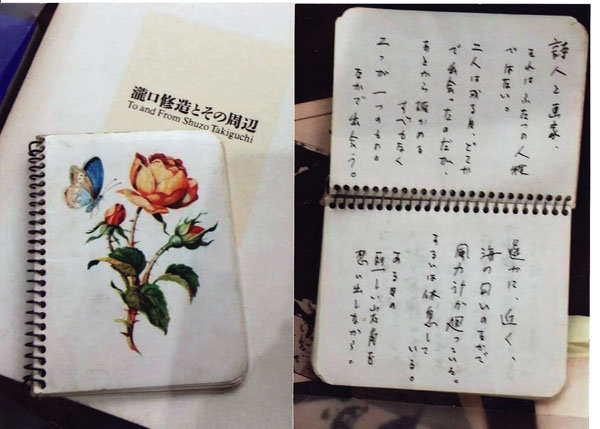 瀧口修造とその周辺
To and From Shuzo Takiguchi
詩人と画家、
それはふたつの人種
ではない。
二人は或る日、どこか
で出会ったのだが、
あとから確かめる
すべもなく
二つが一つのもの。
なかで出会う。
遥かに、近く、
海の匂いのする
風力計が廻っている。
あるいは休息して
いる。
ある日の
思い出しながら。